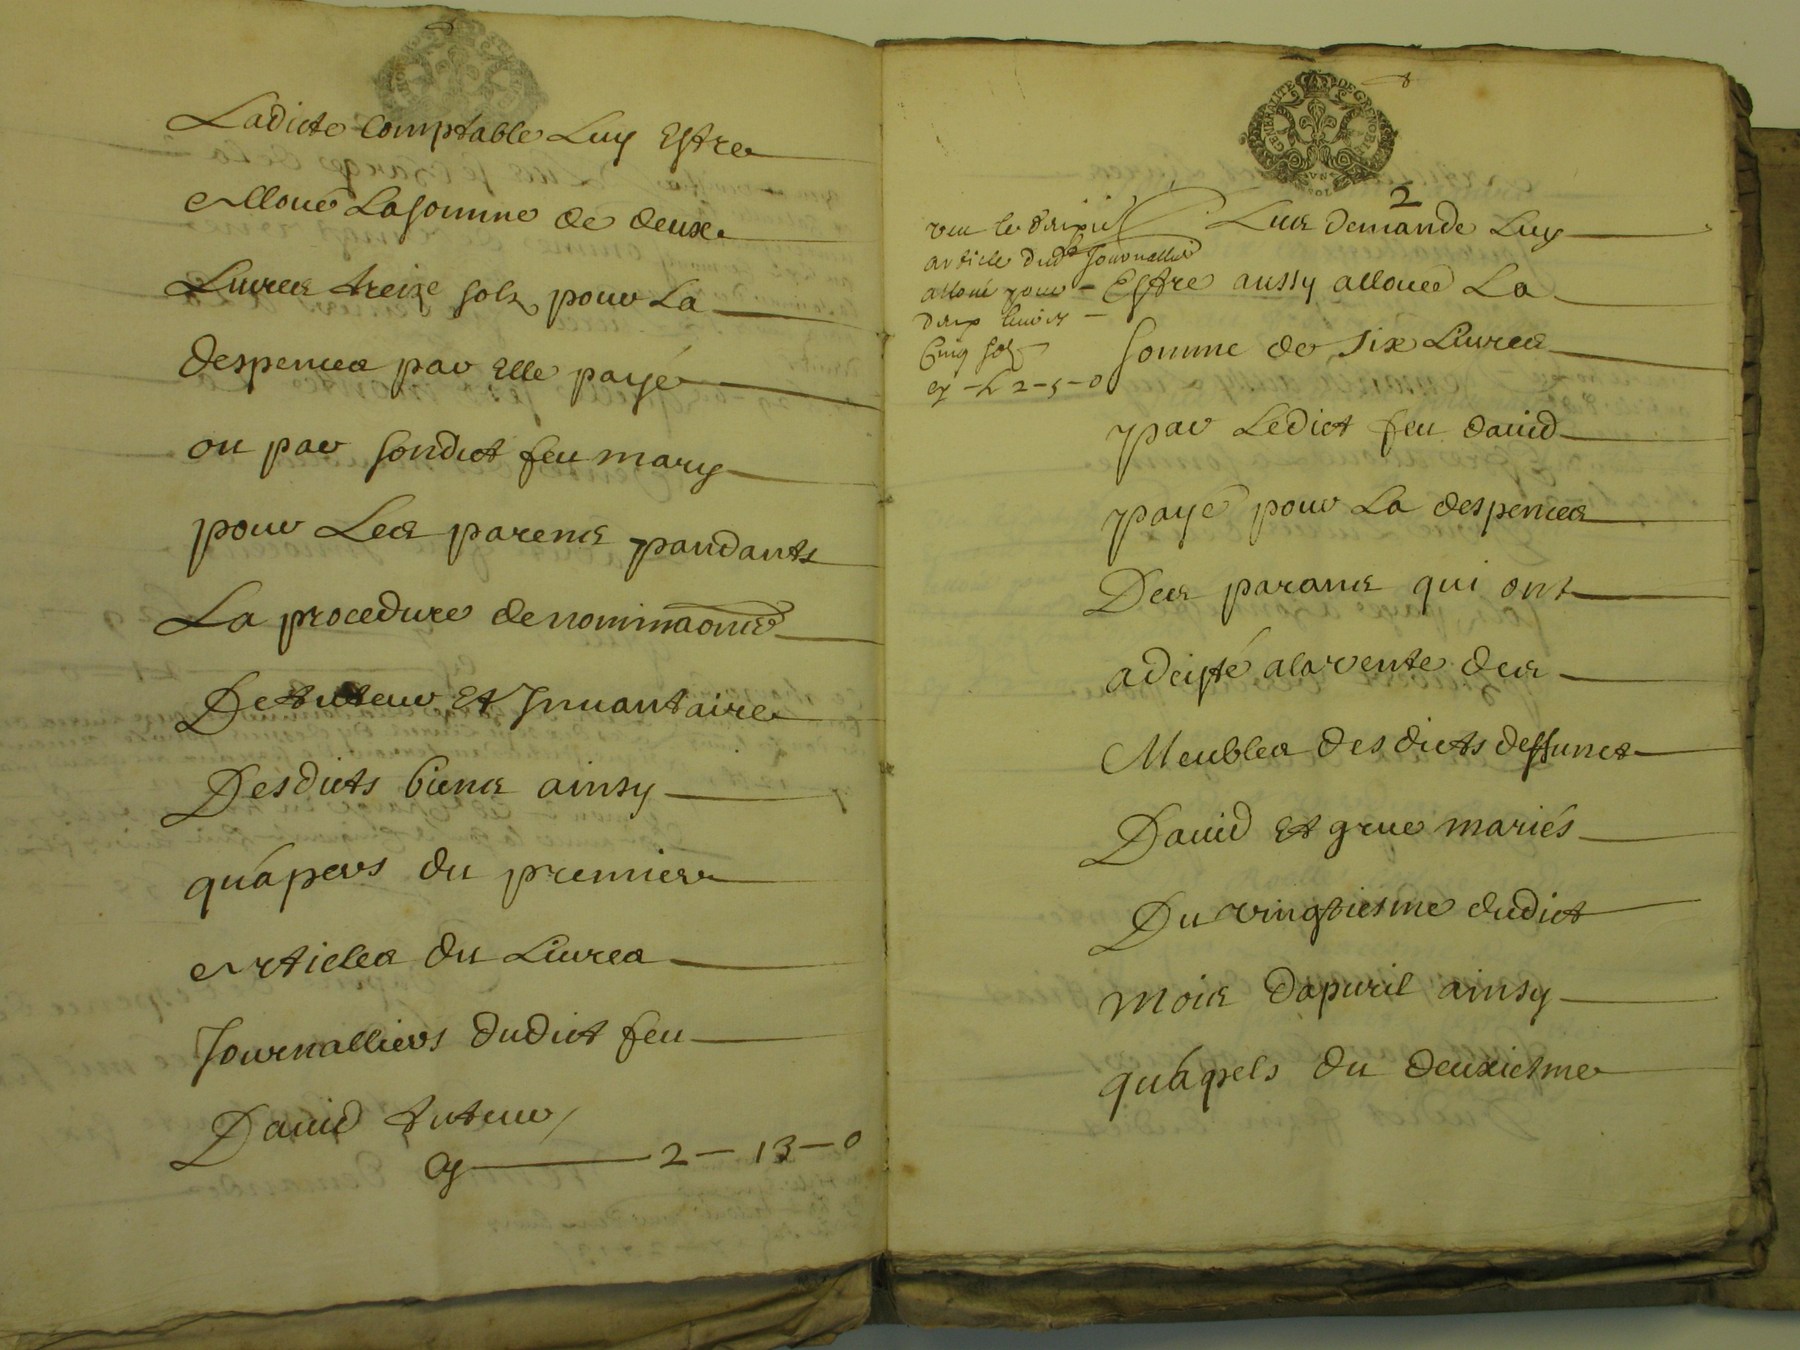 Ladicte Comptable Luy Estre
Alloué La somme de deux
Livres treize solz pour La
despences par Elle payé
ou par sondict feu mary
pour Les parens pandants
La procedure de nominaons
De tuteur Et Invantaire
Desdicts biens ainsy
qu'apers du premier
Articles du Livres
Journalliers dudict feu
David tuteur
Cy 2 - 13 - 0
GENERALITE DE GRENOBLE
8
2
Plus demande Luy
Estre aussy alloueé La
somme de six Livres
par Ledict feu david
payé pour La despences
Des parans qui ont
adcisté a la vente des
Meubles desdicts deffuncts
David Et grue mariés
Du vingtiesme dudict
mois dapvril ainsy
qu'apels du deuxiesme
veu le
article dudt Journallier
alloué pour
deux livres
Cinq solz
cy - L 2 - 5 - 0